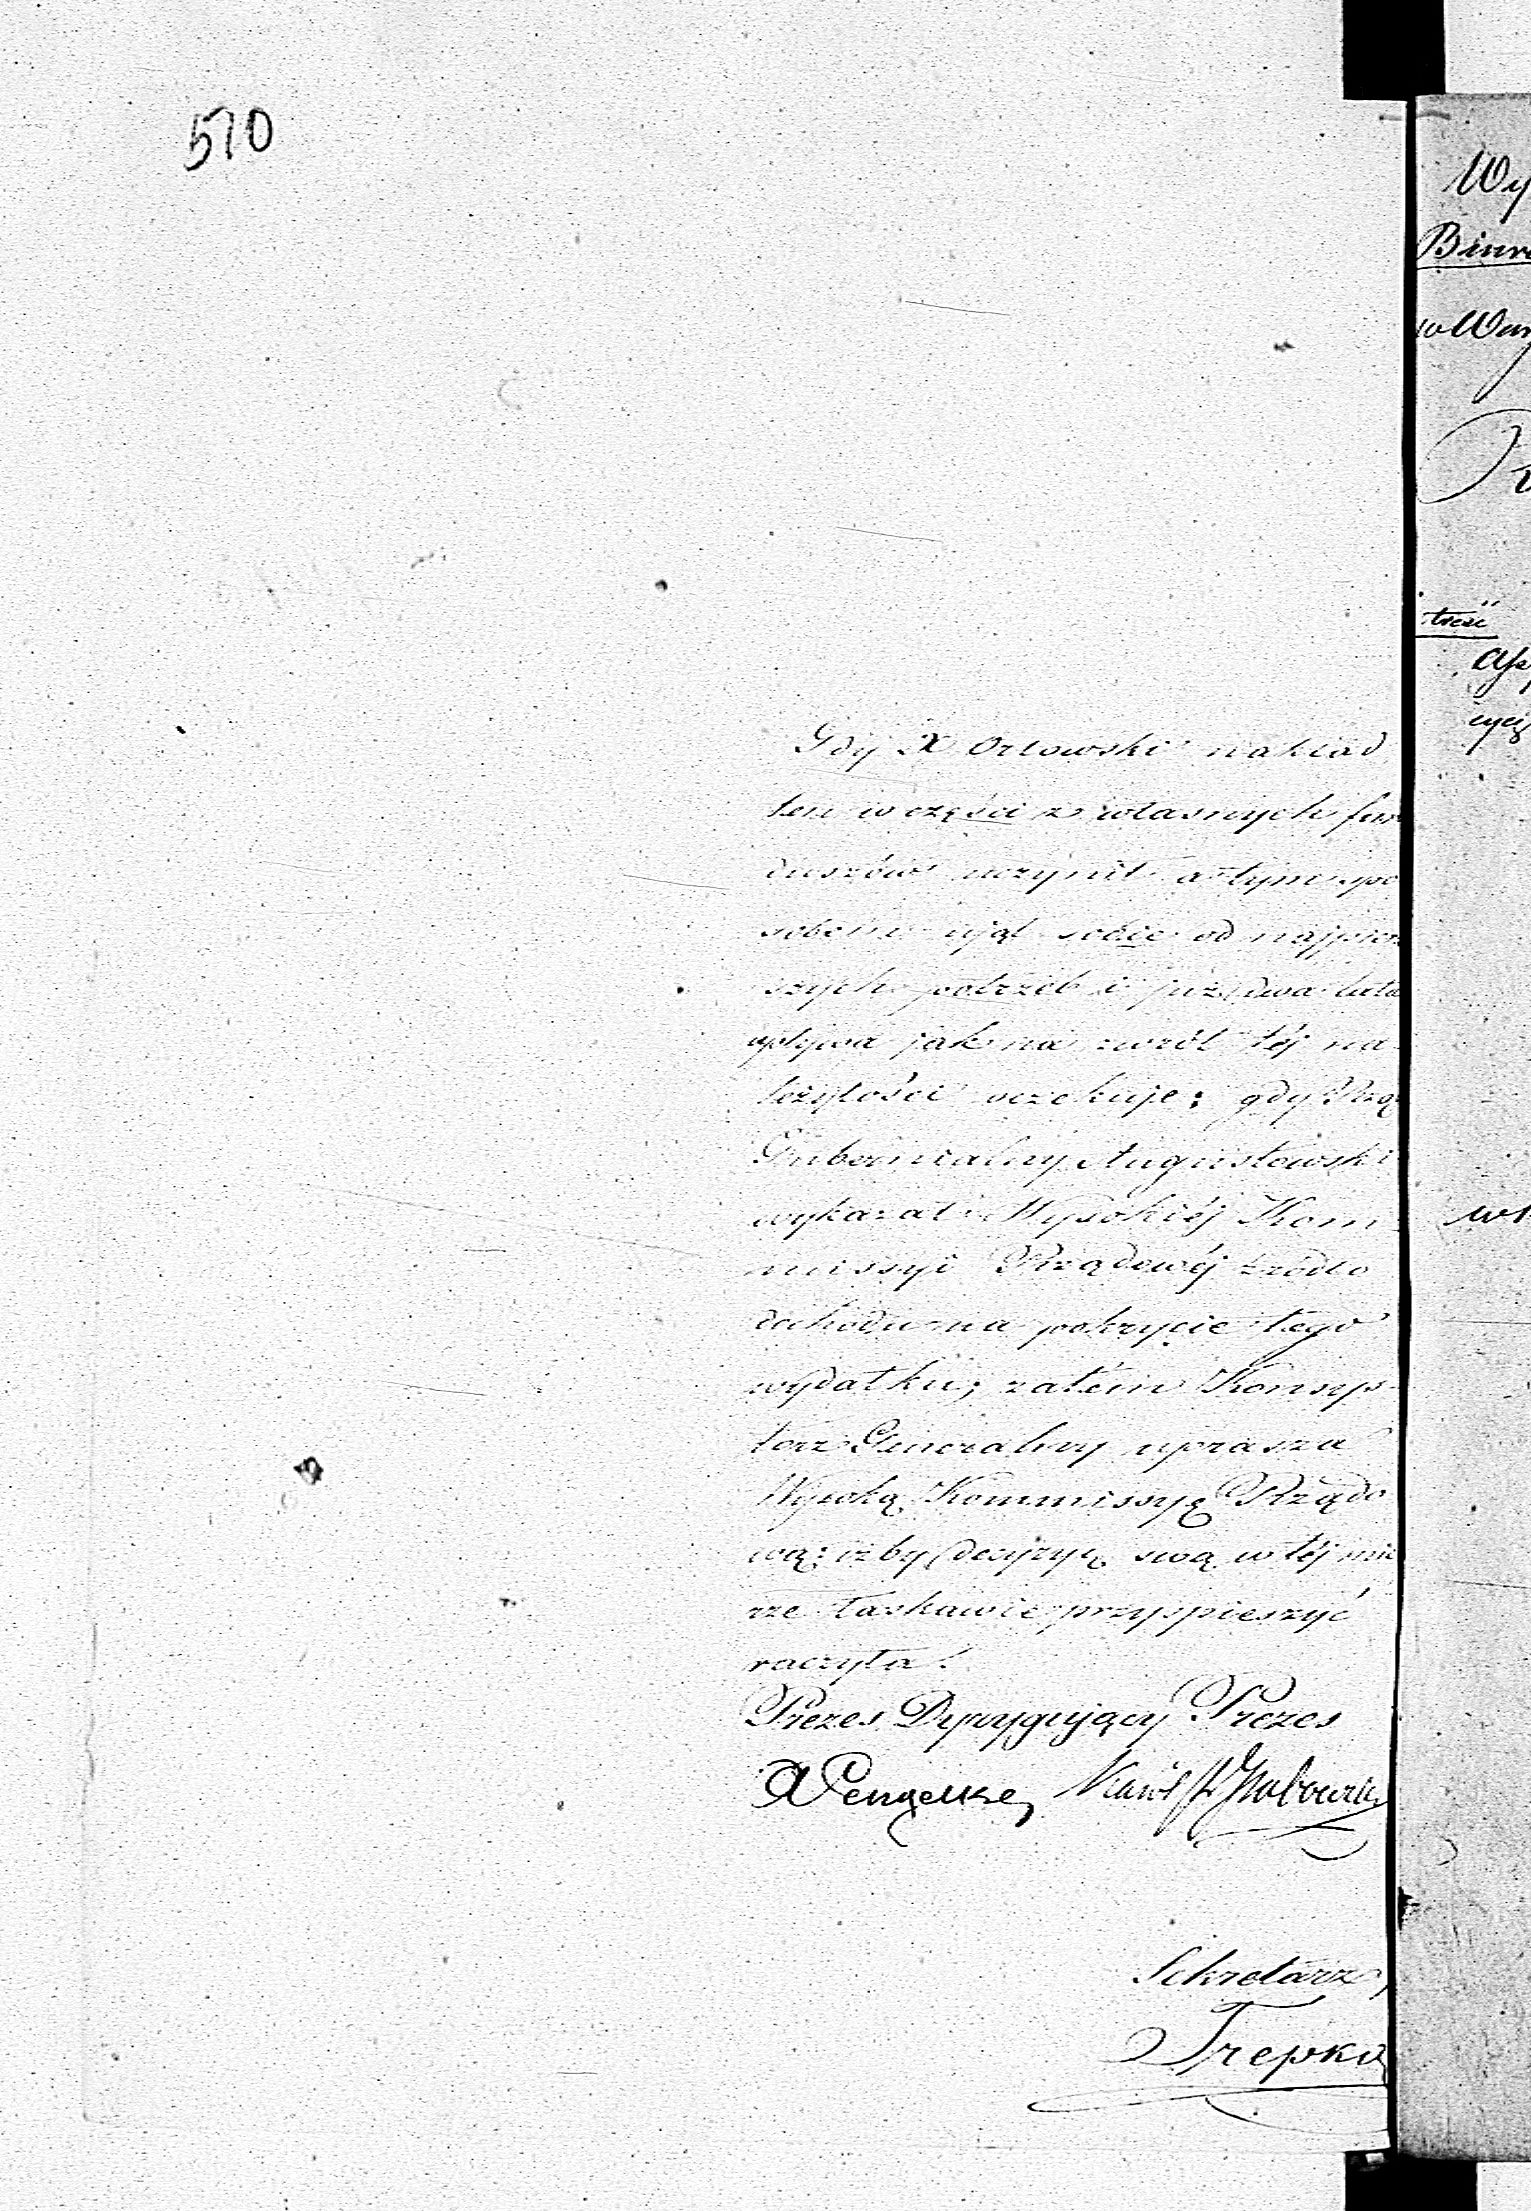 510
Gdy X Orłowski nakład
ten w części z własnych fun
duszów uczynił a tym spo
sobem ujął sobie od najpier
szych potrzeb i już dwa lata
upływa jak na zwrot téj na
leżytości oczekuje; gdy Rzą
Gubernialny Augustowski
wykazał Wysokiéj Kom
missyi Rządowéj źródło
dochodu na pokrycie tego
wydatku; zatém Konsys
torz Generalny uprasza
Wysoką Kommissyę Rządo
wą; iżby decyzyę swą w téj mie
rze łaskawie przyspieszyć
raczyła.
Prezes Dyrygujący Prezes
Karól
Sekretarz,
Trepka
Wy
Biuro
w War
treść